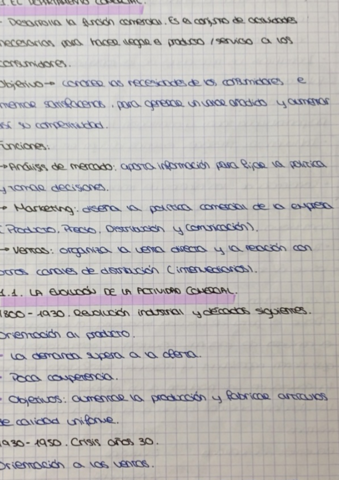 1 EL DEPARTAMENTO COMERCIAL.
- Desarrolla la función comercial. Es el conjunto de actividades
necesarias para hacer llegar el producto/servicio a los
consumidores.
Objetivo → conocer las necesidades de los consumidores e
intentar satisfacerlas, para generar un valor añadido y aumentar
así su competitividad.
Funciones:
→ Análisis de mercado: aporta información para fijar la política
y tomar decisiones.
→ Marketing: diseña la política comercial de la empresa
(Producto, Precio, Distribución y comunicación).
→ Ventas: organiza la venta directa y la relación con
otros canales de distribución (intermediarios).
1.1. LA EVOLUCIÓN DE LA ACTIVIDAD COMERCIAL.
1800 - 1930. Revolución industrial y décadas siguientes.
Orientación al producto.
- La demanda supera a la oferta.
- Poca competencia.
- Objetivos: aumentar la producción y fabricar artículos
de calidad uniforme.
1930 - 1950. Crisis años 30.
Orientación a las ventas.